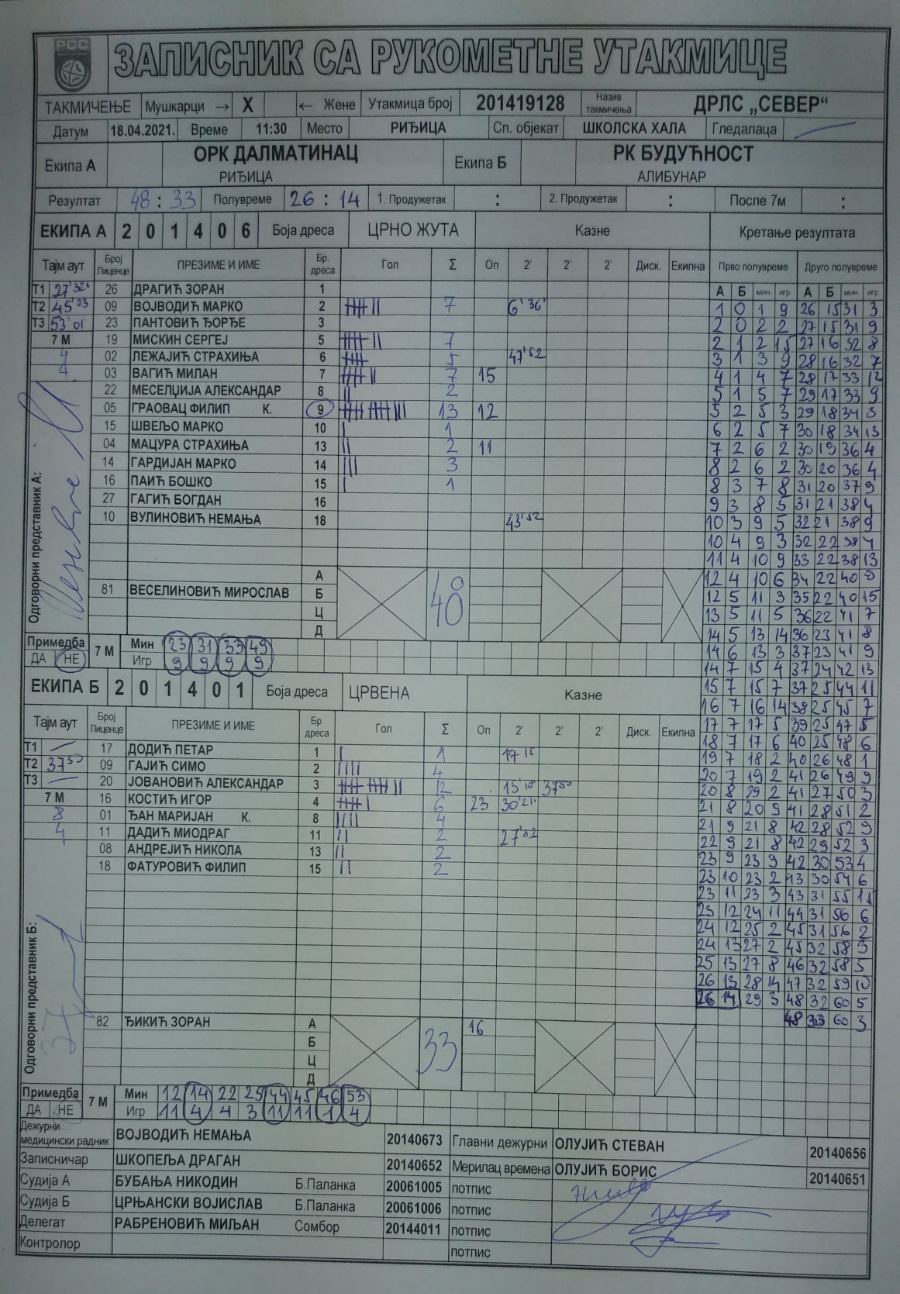 РСС
ЗАПИСНИК СА РУКОМЕТНЕ УТАКМИЦЕ
ТАКМИЧЕЊЕ Мушкарци → X ← Жене Утакмица број 201419128 Назив такмичења ДРЛС „СЕВЕР“
Датум 18.04.2021. Време 11:30 Место РИЂИЦА Сп. објекат ШКОЛСКА ХАЛА Гледалаца
Екипа А ОРК ДАЛМАТИНАЦ Екипа Б РК БУДУЋНОСТ
РИЂИЦА АЛИБУНАР
Резултат 48 : 33 Полувреме 26 : 14 1. Продужетак : 2. Продужетак : После 7м :
ЕКИПА А 2 0 1 4 0 6 Боја дреса ЦРНО ЖУТА Казне Кретање резултата
Тајм аут Број Лиценце ПРЕЗИМЕ И ИМЕ Бр. дреса Гол Σ Оп 2' 2' 2' Диск. Екипна Прво полувреме Друго полувреме
А Б мин игр А Б мин игр
Т1 27'32" 26 ДРАГИЋ ЗОРАН 1
Т2 45'33 09 ВОЈВОДИЋ МАРКО 2 7 6'36" 1 0 1 9 26 15 31 3
Т3 53'01 23 ПАНТОВИЋ ЂОРЂЕ 3 2 0 2 2 27 15 31 9
7 М 19 МИСКИН СЕРГЕЈ 5 7 2 1 2 15 27 16 32 8
4 02 ЛЕЖАЈИЋ СТРАХИЊА 6 5 47'52 3 1 3 9 28 16 32 7
4 03 ВАГИЋ МИЛАН 7 7 15 4 1 4 7 28 17 33 12
22 МЕСЕЛЏИЈА АЛЕКСАНДАР 8 2 5 1 5 7 29 17 33 9
05 ГРАОВАЦ ФИЛИП К. 9 13 12 5 2 5 3 29 18 34 3
15 ШВЕЉО МАРКО 10 1 6 2 5 7 30 18 34 13
04 МАЦУРА СТРАХИЊА 13 2 11 7 2 6 2 30 19 36 4
14 ГАРДИЈАН МАРКО 14 3 8 2 6 2 30 20 36 4
16 ПАИЋ БОШКО 15 1 8 3 7 8 31 20 37 9
27 ГАГИЋ БОГДАН 16 9 3 8 5 31 21 38 4
10 ВУЛИНОВИЋ НЕМАЊА 18 43'52 10 3 9 5 32 21 38 9
10 4 9 3 32 22 38 4
11 4 10 9 33 22 38 13
А 12 4 10 6 34 22 40 9
81 ВЕСЕЛИНОВИЋ МИРОСЛАВ Б 48 12 5 11 3 35 22 40 15
Ц 13 5 11 5 36 22 41 7
Д 14 5 13 14 36 23 41 8
Одговорни представник А:
Примедба 7 М Мин 23 31 33 49 14 6 13 3 37 23 41 9
ДА НЕ Игр 9 9 9 9 14 7 15 4 37 24 42 13
ЕКИПА Б 2 0 1 4 0 1 Боја дреса ЦРВЕНА Казне 15 7 15 7 37 25 44 11
16 7 16 14 38 25 45 7
Тајм аут Број Лиценце ПРЕЗИМЕ И ИМЕ Бр. дреса Гол Σ Оп 2' 2' 2' Диск. Екипна 17 7 17 5 39 25 47 5
Т1 17 ДОДИЋ ПЕТАР 1 1 17'15 18 7 17 6 40 25 48 6
Т2 37'50 09 ГАЈИЋ СИМО 2 4 19 7 18 2 40 26 48 1
Т3 20 ЈОВАНОВИЋ АЛЕКСАНДАР 3 12 15'18" 37'50 20 7 19 2 41 26 49 9
7 М 16 КОСТИЋ ИГОР 4 6 23 30'21" 20 8 29 2 41 27 50 3
8 01 ЂАН МАРИЈАН К. 8 4 21 8 20 9 41 28 51 2
4 11 ДАДИЋ МИОДРАГ 11 2 27'32 21 9 21 8 42 28 52 9
08 АНДРЕЈИЋ НИКОЛА 13 2 22 9 21 8 42 29 52 3
18 ФАТУРОВИЋ ФИЛИП 15 2 23 9 23 9 42 30 53 4
23 10 23 2 43 30 54 6
23 11 23 3 43 31 55 11
23 12 24 11 44 31 56 6
24 12 25 2 45 31 56 2
24 13 27 2 45 32 58 3
25 13 27 8 46 32 58 5
26 13 28 14 47 32 59 10
26 14 29 3 48 32 60 5
82 ЂИКИЋ ЗОРАН А 33 16 48 33 60 3
Б
Ц
Д
Одговорни представник Б:
Примедба 7 М Мин 12 14 22 25 44 45 46 53
ДА НЕ Игр 11 4 4 3 11 11 1 4
Дежурни медицински радник ВОЈВОДИЋ НЕМАЊА 20140673 Главни дежурни ОЛУЈИЋ СТЕВАН 20140656
Записничар ШКОПЕЉА ДРАГАН 20140652 Мерилац времена ОЛУЈИЋ БОРИС 20140651
Судија А БУБАЊА НИКОДИН Б.Паланка 20061005 потпис
Судија Б ЦРЊАНСКИ ВОЈИСЛАВ Б.Паланка 20061006 потпис
Делегат РАБРЕНОВИЋ МИЉАН Сомбор 20144011 потпис
Контролор потпис